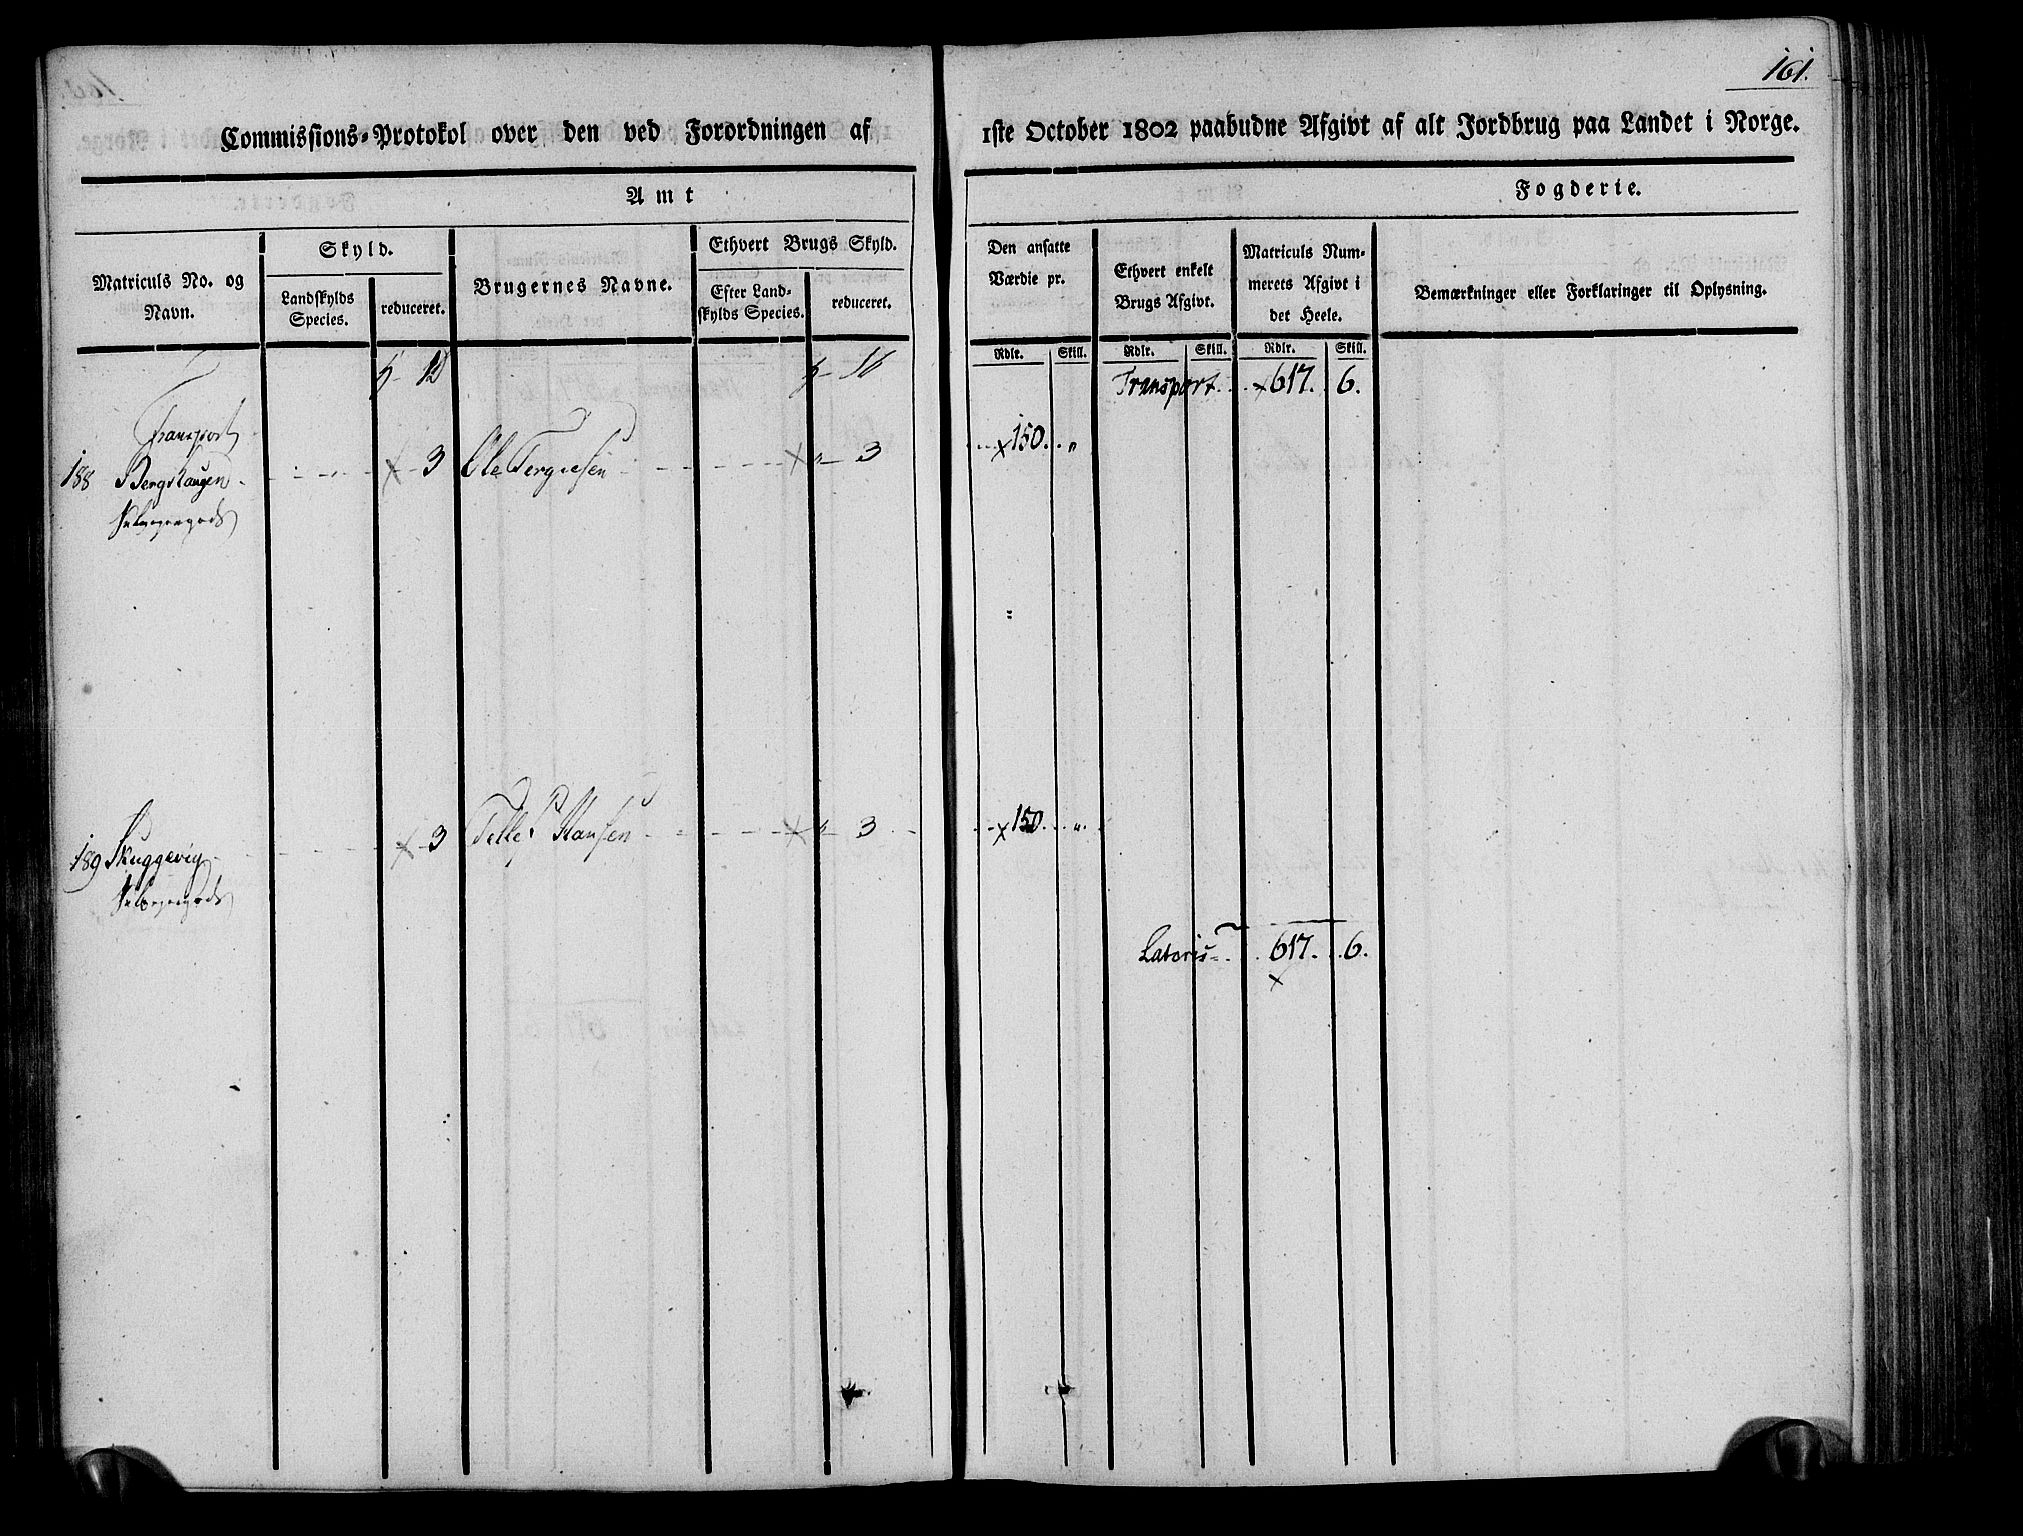 161.
Commissions-Protokol over den ved Forordningen af 1ste October 1802 paabudne Afgivt af alt Jordbrug paa Landet i Norge.
Amt
Fogderie.
Matriculs No. og Navn.
Skyld.
Landskylds Species.
reduceret.
Brugernes Navne.
Ethvert Brugs Skyld.
Efter Landskylds Species.
reduceret.
Den ansatte Værdie pr.
Ethvert enkelt Brugs Afgivt.
Matriculs Nummerets Afgivt i det Heele.
Bemærkninger eller Forklaringer til Oplysning.
Rdlr. Skill. Rdlr. Skill. Rdlr. Skill.
Transport
Transport. 617. 6.
188 Berghaugen 3 Ole Tergiesen 3 150. "
Selveyergods
189 Skuggevig 3 Tellef Hansen 3 150. "
Selveyergods
Lateris 617. 6.